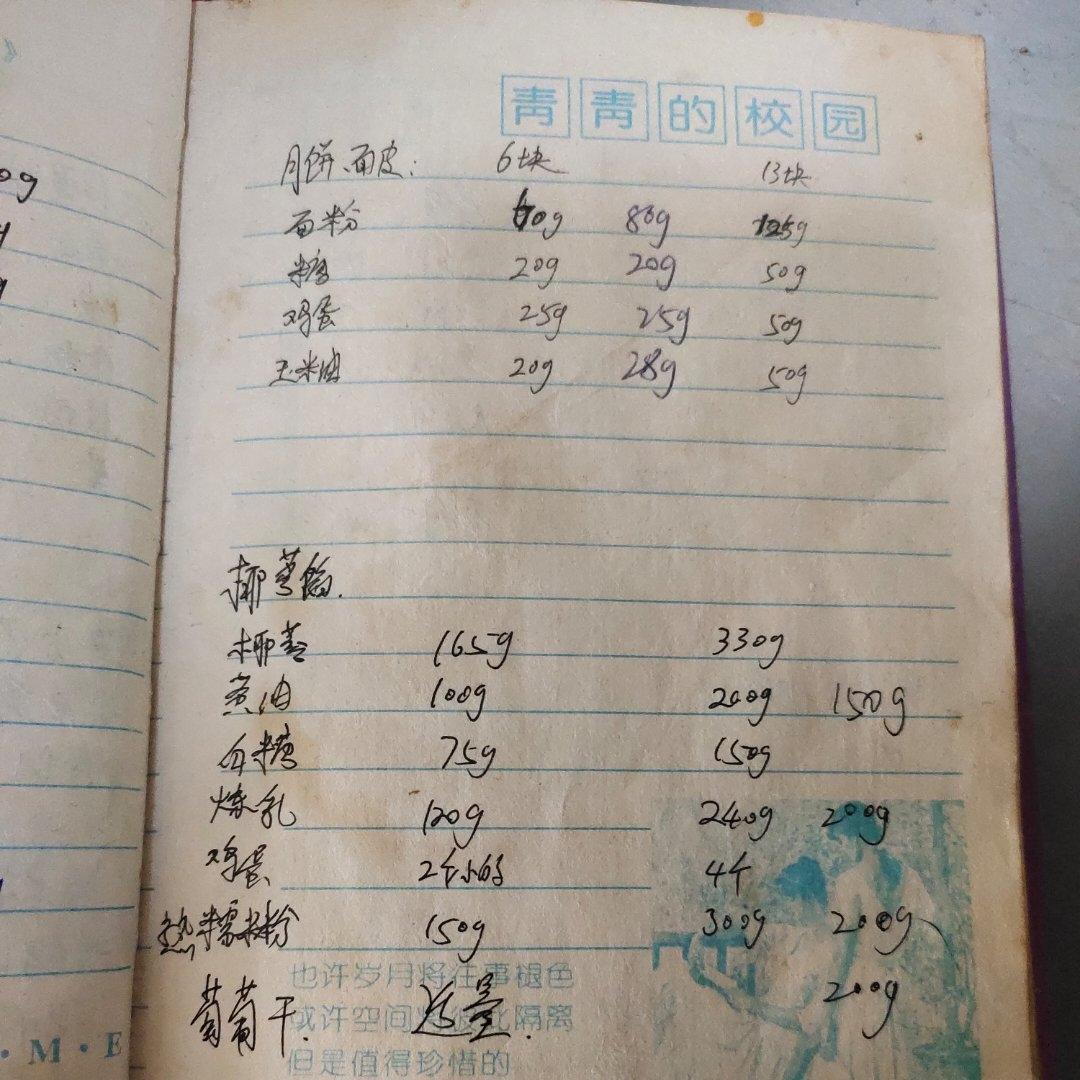 0g
青青的校园
月饼面皮： 6块 13块
面粉 60g 80g 125g
糖 20g 20g 50g
鸡蛋 25g 25g 50g
玉米油 20g 28g 50g
椰蓉馅.
椰蓉 165g 330g
黄油 100g 200g 150g
白糖 75g 150g
炼乳 120g 240g 200g
鸡蛋 2个小的 4个
熟糯米粉 150g 300g 200g
也许岁月将往事褪色
葡萄干. 适量. 200g
或许空间将彼此隔离
·M·E
但是值得珍惜的